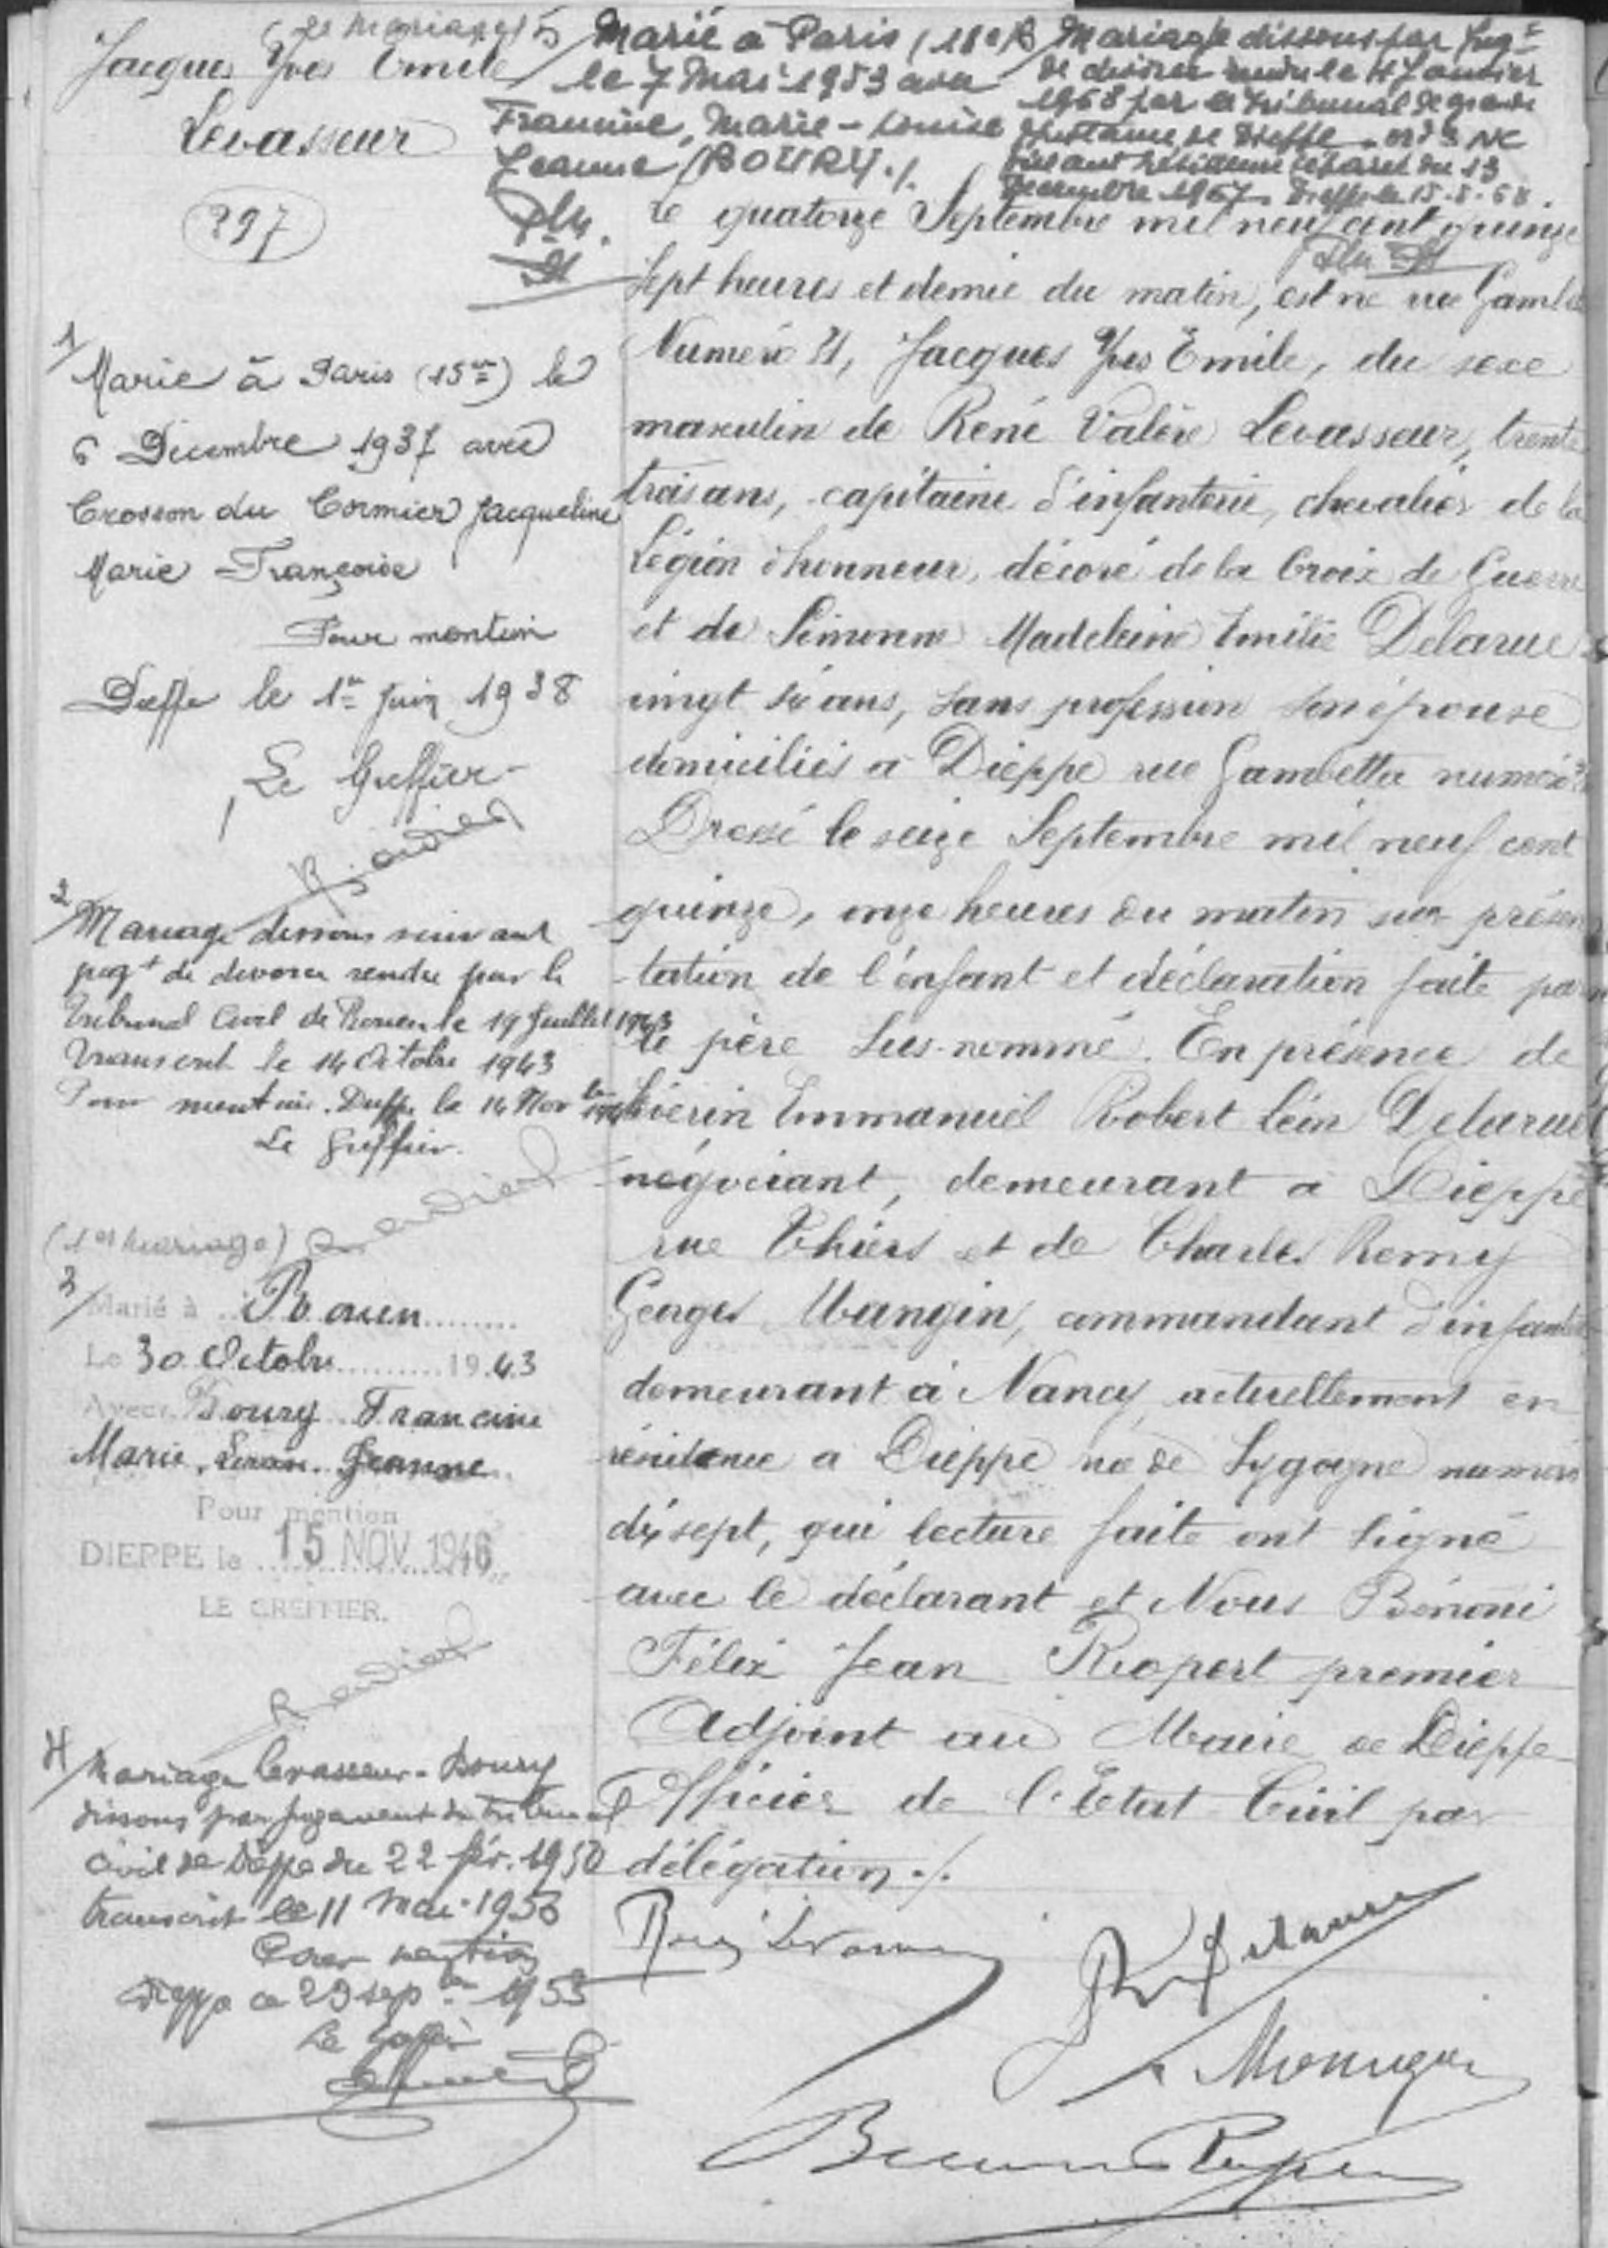 Jacques Yves Emile
Levasseur
297
(2e mariage) 5/ Marié à Paris (18e)
le 7 Mai 1953 avec
Francine, Marie-Louise
Jeanne BOURY ./.
6/ Mariage dissous par Jugt
de divorce rendu le 4 Janvier
1968 par le Tribunal de grande
Instance de Dieppe - ordce NC
résidence séparée du 13
Décembre 1967. Dieppe le 15-5-68.
1/
Marié à Paris (15me) le
6 Décembre 1937 avec
Crosson du Cormier Jacqueline
Marie Françoise
Pour mention
Dieppe le 1er Juin 1938
Le Greffier
2/ Mariage dissous suivant
jugt de divorce rendu par le
Tribunal Civil de Rouen le 19 Juillet 1943
Transcrit le 14 Octobre 1943
Pour mention. Dieppe le 14 Nov
Le Greffier.
(1er mariage)
3/ Marié à Rouen
Le 30 Octobre 1943
Avec Boury Francine
Marie Jeanne
Pour mention
DIEPPE le 15 NOV 1946
LE GREFFIER.
4/ Mariage Levasseur-Boury
dissous par jugement du tribunal
civil de Dieppe du 22 fév. 1950
transcrit le 11 mai 1950
Pour mention
Dieppe ce 29 sepbre 1953
Le Greffier
Le quatorze Septembre mil neuf cent quinze
sept heures et demie du matin, est né rue Gambetta
Numéro 31, Jacques Yves Emile, du sexe
masculin de René Valère Levasseur, trente
trois ans, capitaine d'infanterie, chevalier de la
Légion d'honneur, décoré de la Croix de Guerre
et de Simonne Madeleine Emilie Delarue
vingt six ans, sans profession son épouse
domiciliés à Dieppe rue Gambetta numéro 31
Dressé le seize Septembre mil neuf cent
quinze, onze heures du matin sur présen
-tation de l'enfant et déclaration faite par
le père sus-nommé. En présence de
Sévérin Emmanuel Robert Léon Delarue
négociant, demeurant à Dieppe
rue Thiers et de Charles Remy
Georges Mangin, commandant d'infanterie
demeurant à Nancy actuellement en
résidence à Dieppe rue de Sygogne numéro
dix sept, qui lecture faite ont signé
avec le déclarant et Nous Bénoni
Félix Jean Ropert premier
Adjoint au Maire de Dieppe
Officier de l'Etat Civil par
délégation ./.